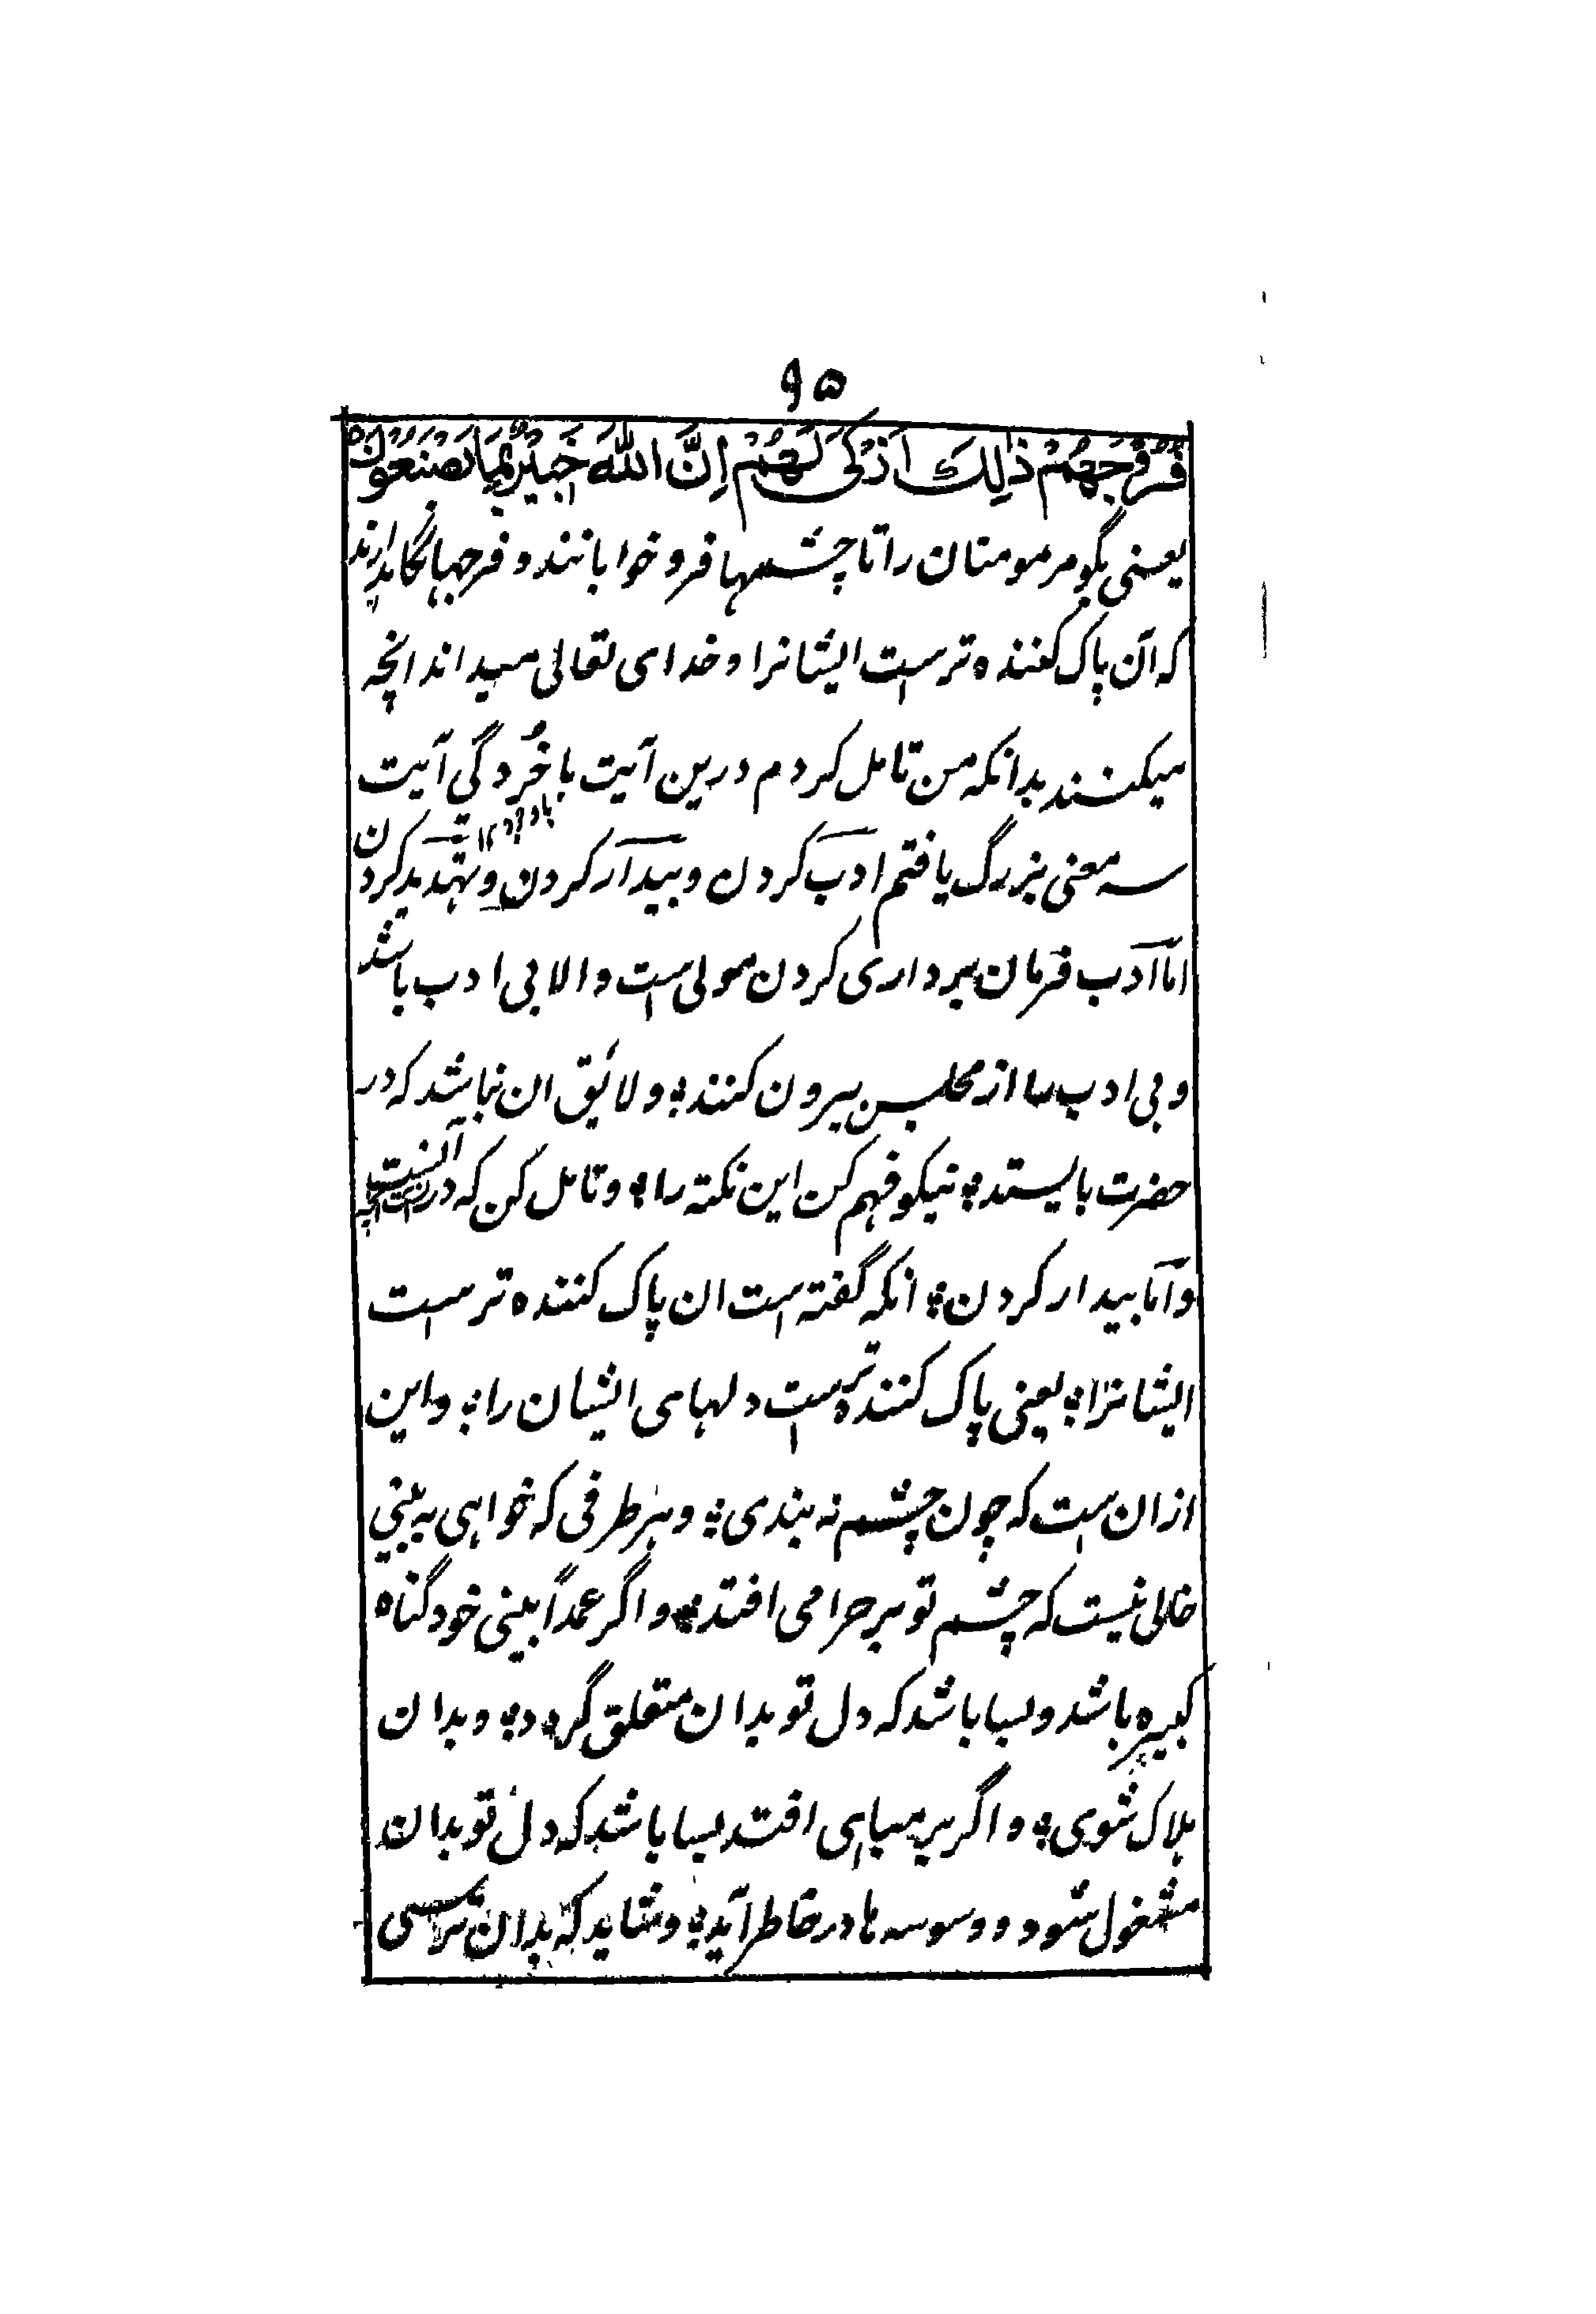 ۹۵
فُرُوْجَهُمْ ذٰلِكَ اَزْكٰى لَهُمْ اِنَّ اللّٰهَ خَبِيْرٌۢ بِمَا يَصْنَعُوْنَ
یعنی بگو مر مومنان را تا چشمہا فرو خوابانند و فرجہا نگاہدارند
کہ آن پاک کنندہ ترست ایشانرا و خدای تعالی میداند انچہ
میکنند بدانکہ من تامل کردم درین آیت با خُردگی آیت
سہ معنی بزرگ یافتم ادب کردن و بیدار کردن و تہدید کردن
اما ادب فرمان برداری کردن مولی ست و الا بی ادب باشد
و بی ادب را از مجلس بیرون کنند؛ و لائق ان نباشد کہ در
حضرت بایستد؛ نیکو فہم کن این نکتہ را؛ و تامل کن کہ در
و اما بیدار کردن؛ انکہ گفتہ است ان پاک کنندہ ترست
ایشانرا؛ یعنی پاک کنندہ ترست دلہای ایشان را؛ و این
از ان ست کہ چون چشم نہ بندی؛ و بہر طرفی کہ خواہی بہ بینی
خالی نیست کہ چشم تو بر حرامی افتد؛ و اگر عمداً بینی خود گناہ
کبیرہ باشد و بسا باشد کہ دل تو بدان متعلق گردد؛ و بدان
ہلاک شوی؛ و اگر بر مباحی افتد بسا باشد کہ دل تو بدان
مشغول شود و وسوسہ ہا در خاطر آید؛ و شاید کہ بدان نرسی